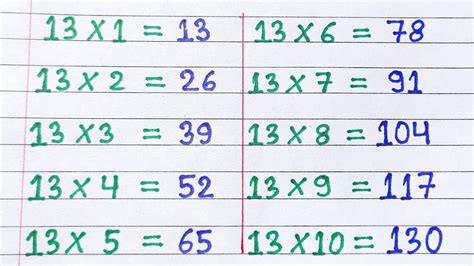 13 X 1 = 13
13 X 2 = 26
13 X 3 = 39
13 X 4 = 52
13 X 5 = 65
13 X 6 = 78
13 X 7 = 91
13 X 8 = 104
13 X 9 = 117
13 X 10 = 130